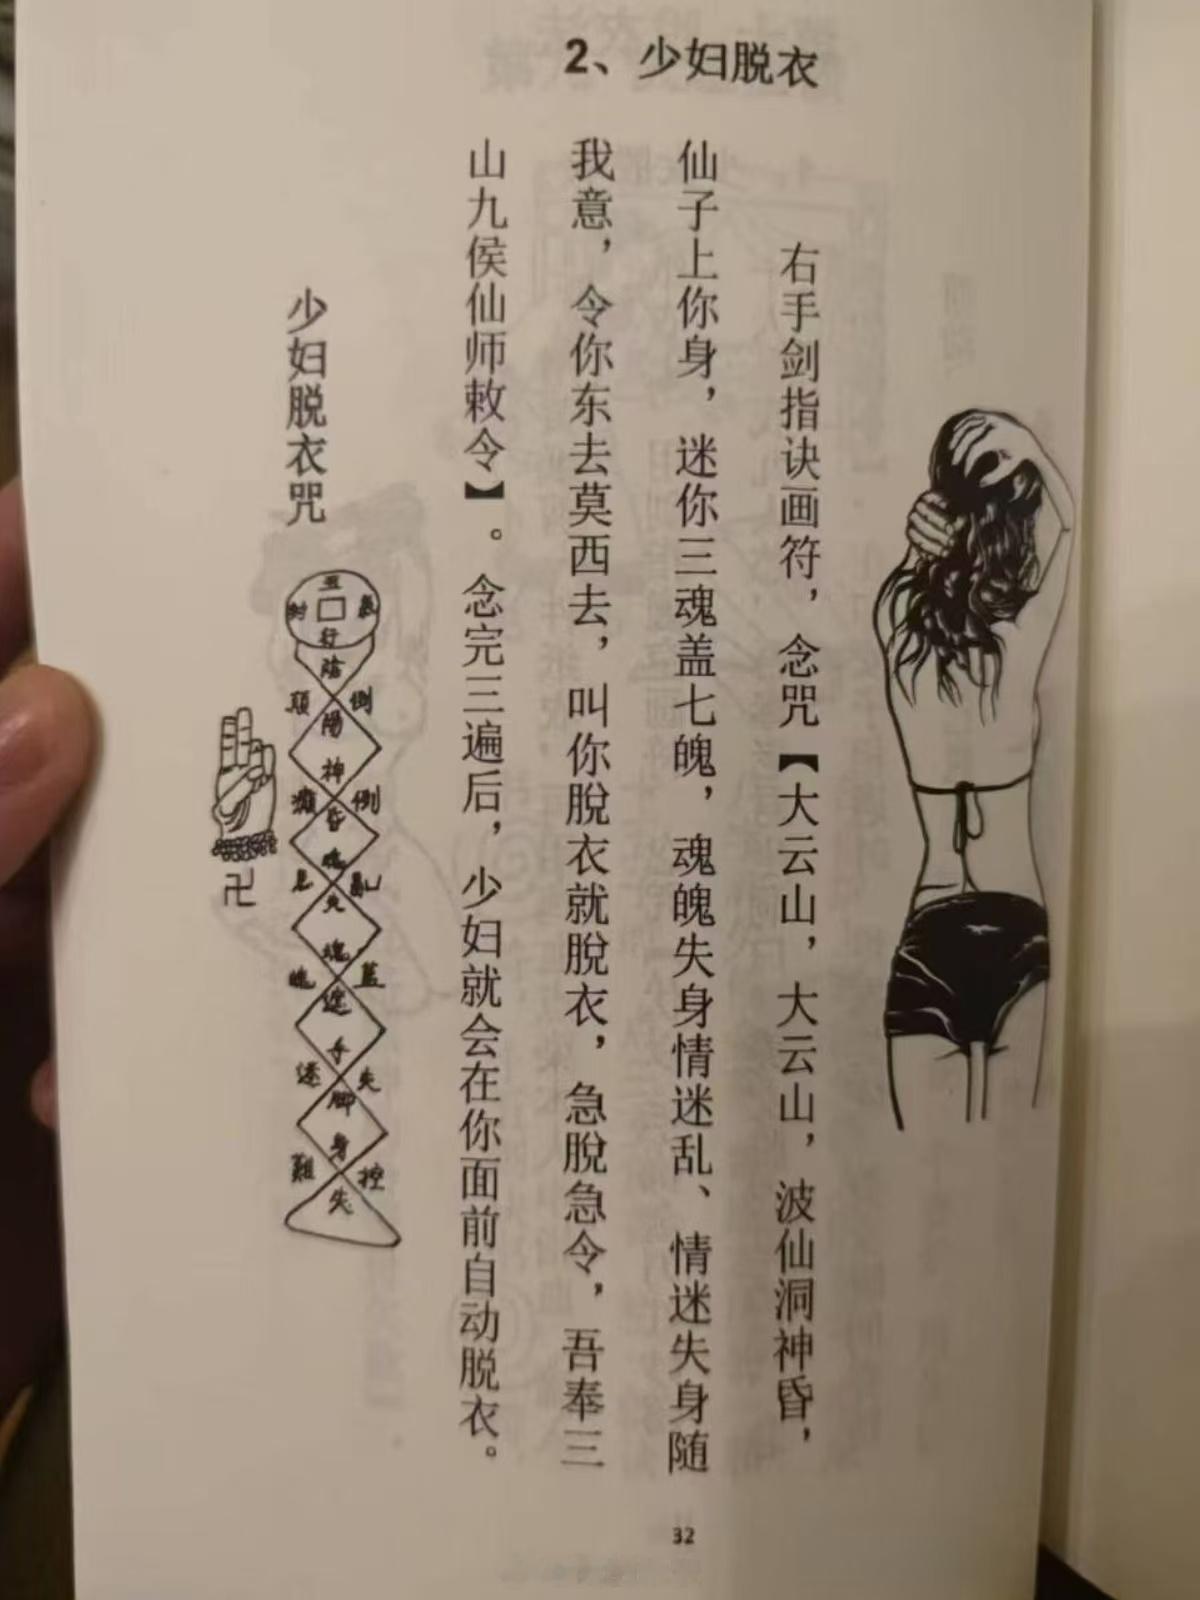 2、少妇脱衣
右手剑指诀画符，念咒【大云山，大云山，波仙洞神昏，
仙子上你身，迷你三魂盖七魄，魂魄失身情迷乱、情迷失身随
我意，令你东去莫西去，叫你脫衣就脫衣，急脫急令，吾奉三
山九侯仙师敕令】。念完三遍后，少妇就会在你面前自动脱衣。
少妇脱衣咒
陰
陽
神
魂
手
脚
身
失
顛
倒
倒
亂
失
難
控
卍
32